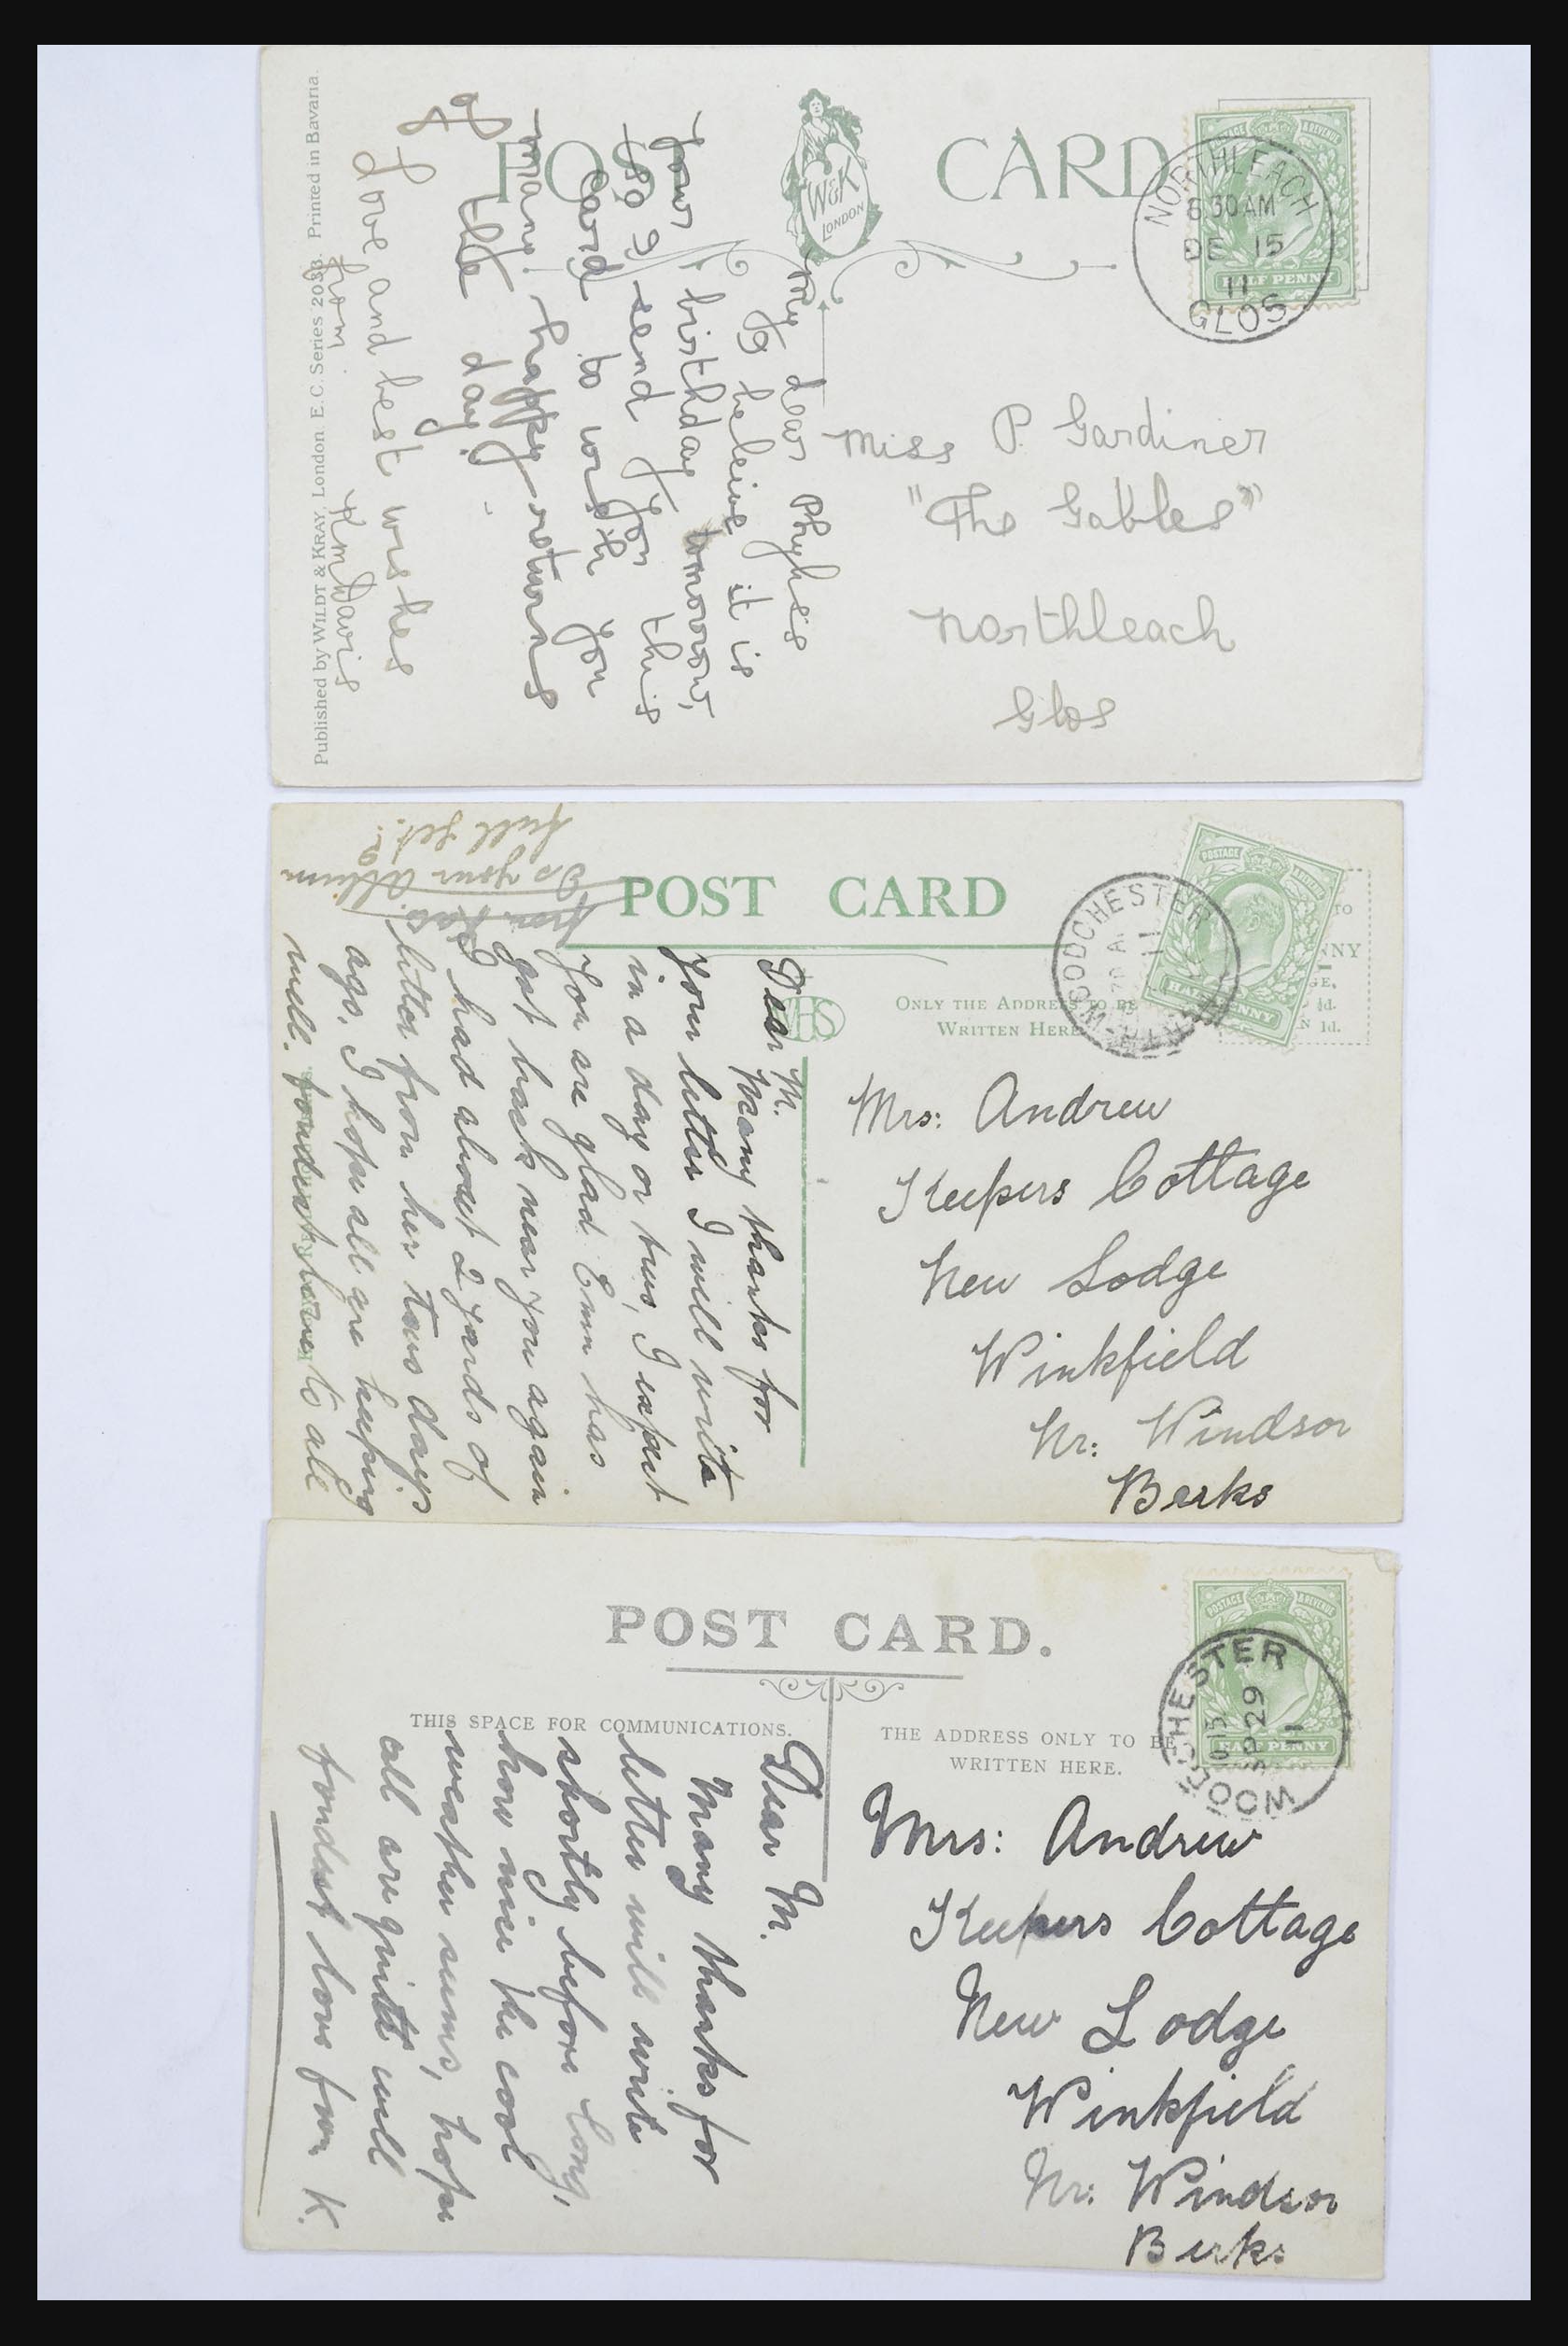 POST CARD
W&K
LONDON
NORTHLEACH
8 30 AM
DE 15
11
GLOS
POSTAGE & REVENUE
HALF PENNY
Miss P. Gardiner
"The Gables"
Northleach
Glos
My dear Phyllis
I beleive it is
your birthday tomorrow,
so I send you this
card to wish you
many happy returns
of the day.
Love and best wishes
from
Davis
Published by WILDT & KRAY, London. E.C. Series 2093. Printed in Bavaria.
POST CARD
POSTAGE & REVENUE
HALF PENNY
WOODCHESTER
11
WHS
ONLY THE ADDRESS TO BE
WRITTEN HERE
Mrs: Andrew
Keepers Cottage
New Lodge
Winkfield
Nr: Windsor
Berks
Dear M.
Many thanks for
your letter I will write
in a day or two, I expect
you are glad Emm has
got back near you again
I had about 2 yards of
letter from her two days
ago. I hope all are keeping
well. fondest love to all
from Kate.
Is your album
full yet?
POST CARD.
THIS SPACE FOR COMMUNICATIONS.
THE ADDRESS ONLY TO BE
WRITTEN HERE.
POSTAGE & REVENUE
HALF PENNY
WOODCHESTER
1015
SP 29
11
Mrs: Andrew
Keepers Cottage
New Lodge
Winkfield
Nr: Windsor
Berks
Dear M.
Many thanks for
letter will write
shortly before long,
how nice the cool
weather seems, hope
all are quite well
fondest love from K.